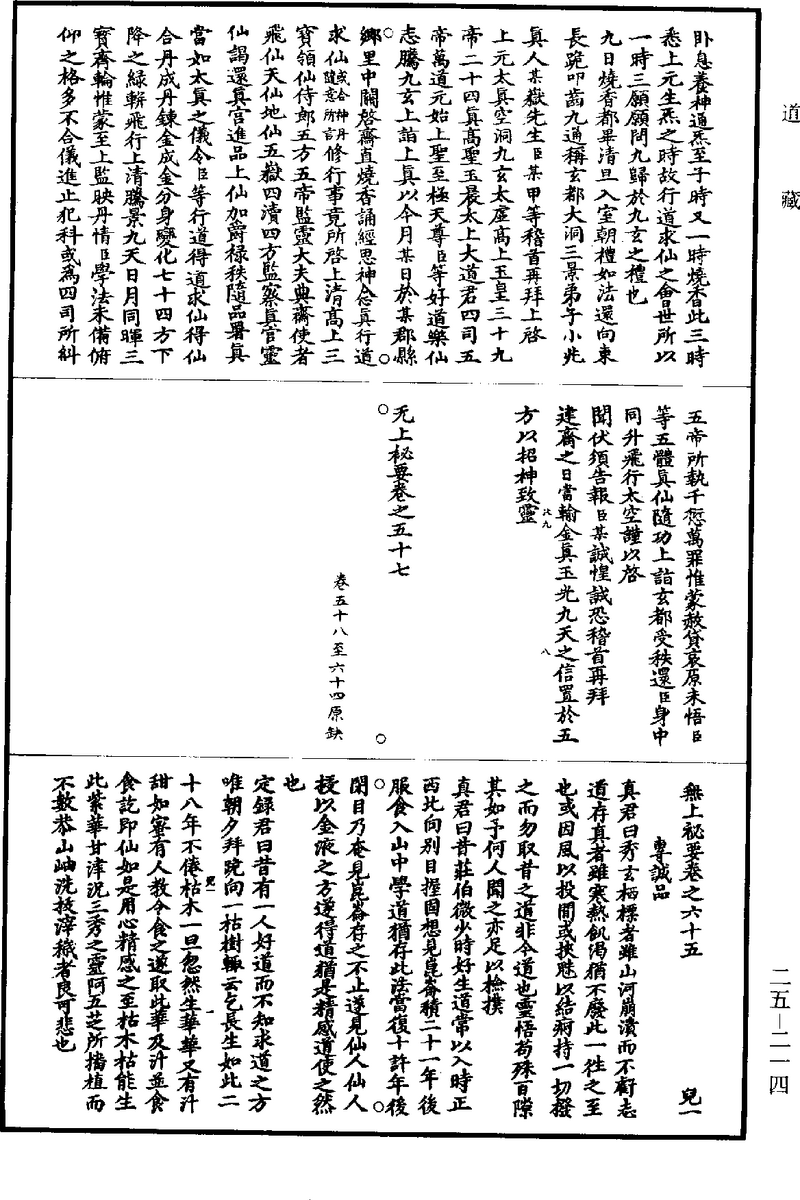 道藏
卧息養神通炁至子時又一時燒香此三時
悉上元生炁之時故行道求仙之會世所以
一時三願願問九歸於九玄之禮也
九日燒香都畢清旦入室朝禮如法還向東
長跪叩齒九通稱玄都大洞三景弟子小兆
真人某嶽先生臣某甲等稽首再拜上啓
上元太真空洞九玄太虛高上玉皇三十九
帝二十四真高聖玉晨太上大道君四司五
帝萬道元始上聖至極天尊臣等好道樂仙
志騰九玄上詣上真以今月某日於某郡縣
鄉里中開啓齋直燒香誦經思神念真行道
求仙或合神丹隨意所言修行事竟所啓上清高上三
寶領仙侍郎五方五帝監靈大夫典齋使者
飛仙天仙地仙五嶽四瀆四方監察真官靈
仙謁還真宮進品上仙加爵祿秩隨品署真
當如太真之儀令臣等行道得道求仙得仙
合丹成丹鍊金成金分身變化七十四方下
降之緑軿飛行上清騰景九天日月同暉三
寶齊輪惟蒙至上監映丹情臣學法未備俯
仰之格多不合儀進止犯科或為四司所糾
五帝所執千愆萬罪惟蒙赦貸哀原未悟臣
等五體真仙隨功上詣玄都受秩還臣身中
同升飛行太空謹以啓
聞伏須告報臣某誠惶誠恐稽首再拜
建齋之日當輸金真玉光九天之信置於五
方以招神致靈
无上祕要卷之五十七
卷五十八至六十四原缺
無上祕要卷之六十五 兒一
專誠品
真君曰秀玄栖標者雖山河崩潰而不㪽志
道存真者雖寒熱飢渴猶不廢此一徃之至
也或因風以投間或挾魅以結痾持一切撥
之而勿取昔之道非今道也靈悟苟殊百隙
其如予何人聞之亦足以檢撲
真君曰昔莊伯微少時好生道常以入時正
西北向别目握固想見崑崙積二十一年後
服食入山中學道猶存此法當復十許年後
閉目乃奄見崑崙存之不止遂見仙人仙人
授以金液之方遂得道猶是精感道使之然
也
定録君曰昔有一人好道而不知求道之方
唯朝夕拜跪向一枯樹輒云乞長生如此二
十八年不倦枯木一旦忽然生華華又有汁
甜如蜜有人教令食之遂取此華及汁並食
食訖即仙如是用心精感之至枯木枯能生
此紫華甘津況三秀之靈阿五芝所播植而
不數恭山岫洗拔滓穢者良可悲也
二五—二一四